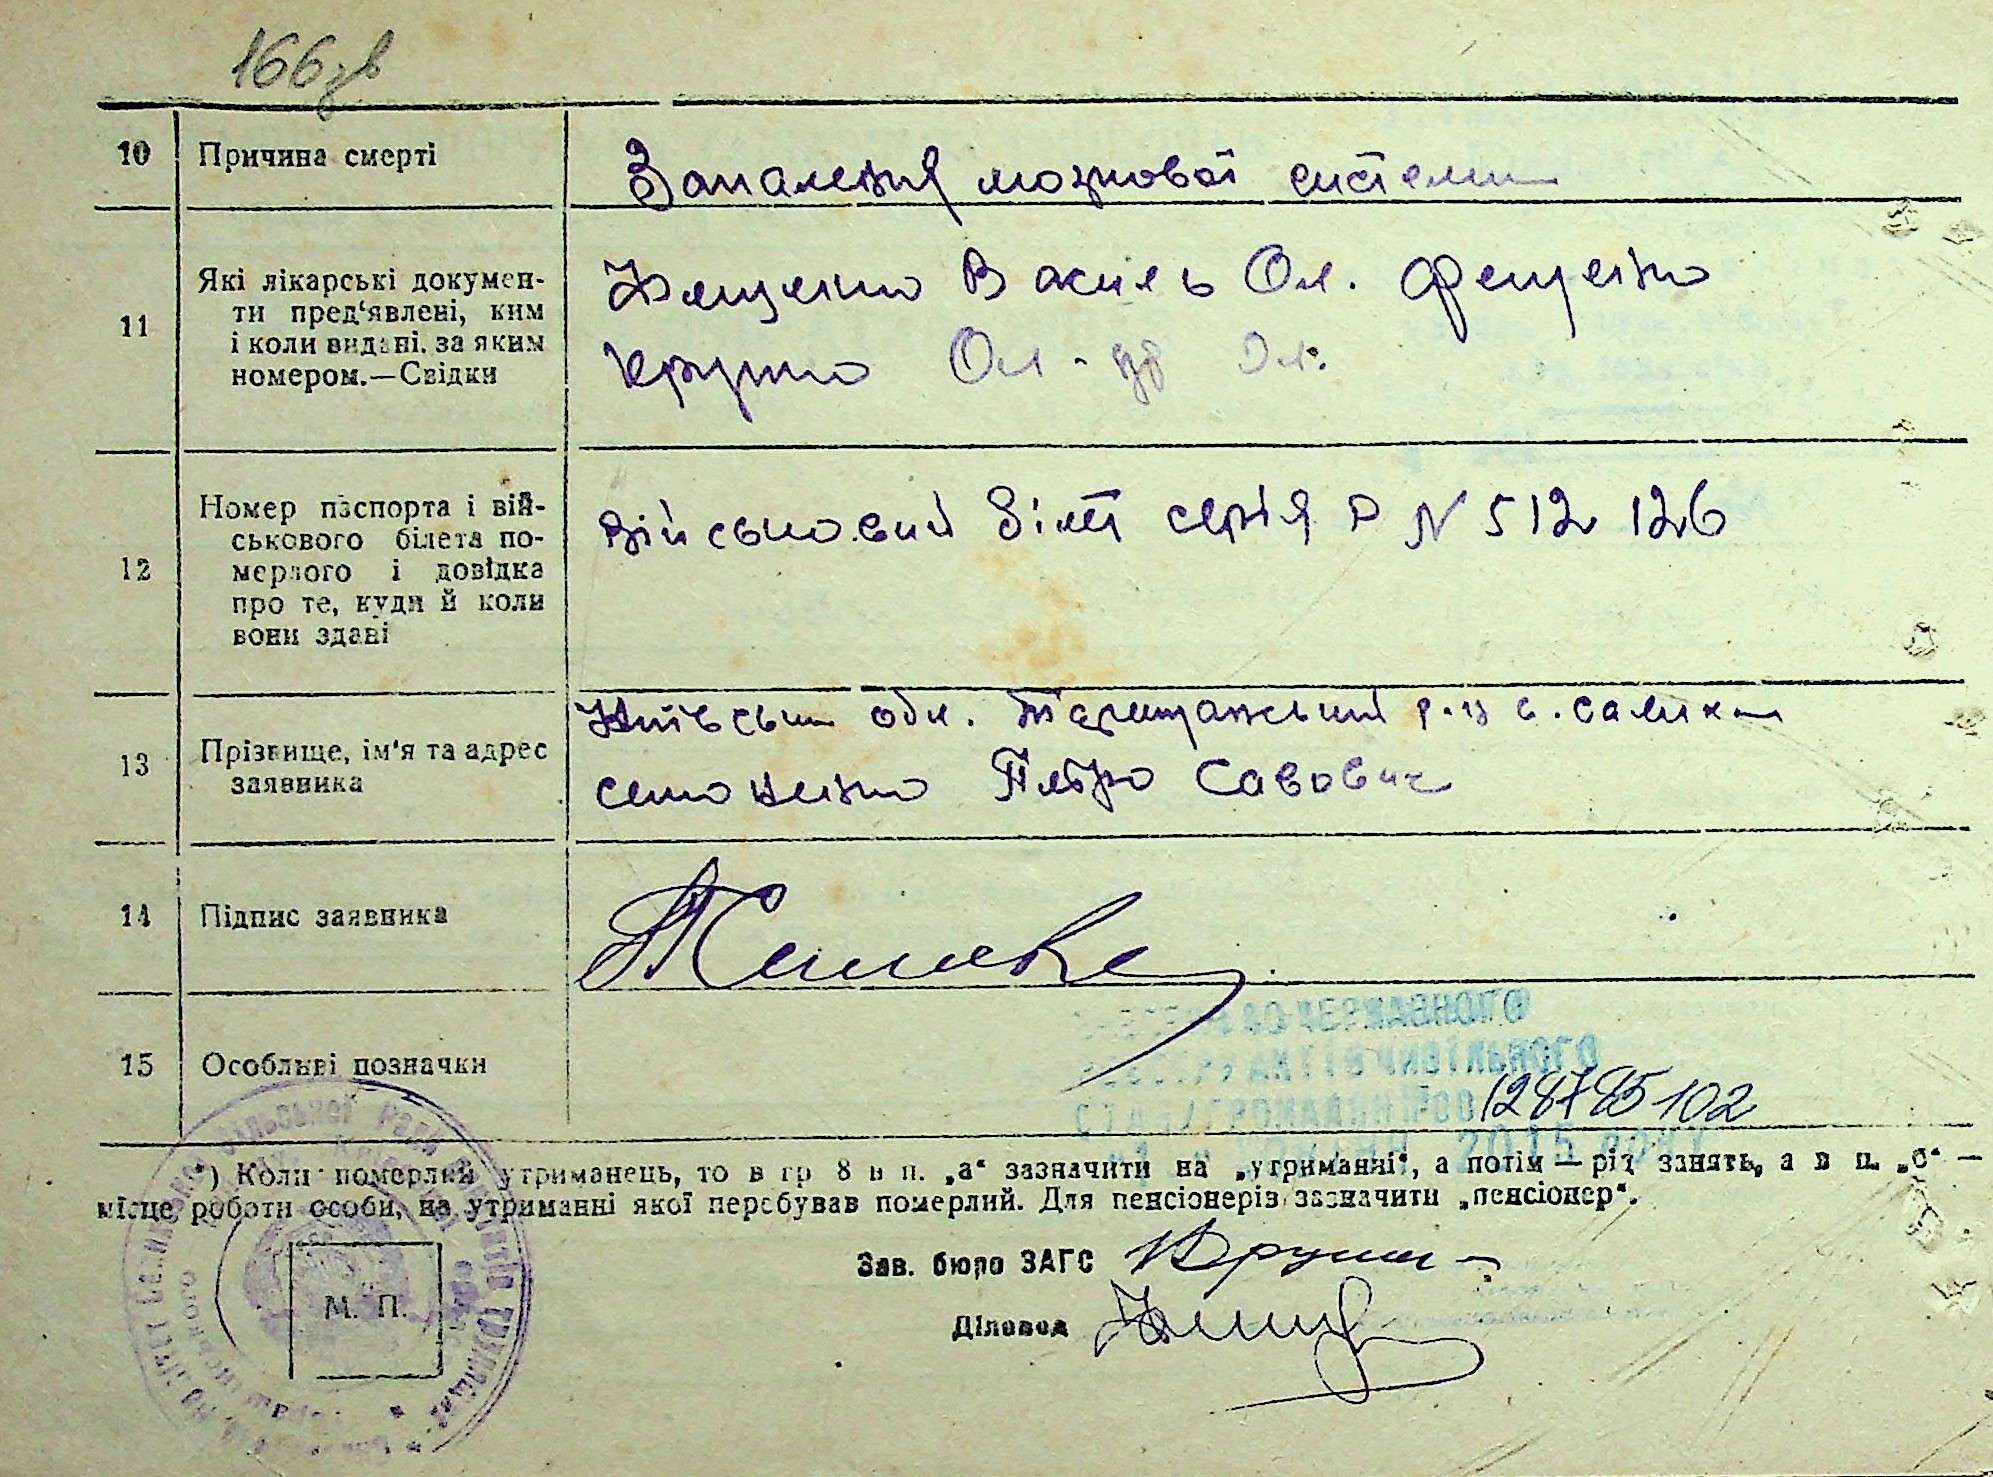 166зв
10 Причина смерті Запалення мозкової системи
11 Які лікарські докумен-
ти пред‘явлені, ким
і коли видані. за яким
номером.—Свідки
Василь Ол. Фещенко
Ол-др Ол.
12 Номер паспорта і вій-
ськового білета по-
мерлого і довідка
про те, куди й коли
вони здані
Військовий білет серія Р N 512126
13 Прізвище, ім‘я та адрес
заявника
Київська обл. р-н с.
Петро Савович
14 Підпис заявника
15 Особливі позначки
128785102
2015 року
*) Коли померлий утриманець, то в гр 8 в п. „а“ зазначити на „утриманні“, а потім — рід занять, а в п. „б“ —
місце роботи особи, на утриманні якої перебував померлий. Для пенсіонерів зазначити „пенсіонер“.
Зав. бюро ЗАГС
М. П.
Діловод